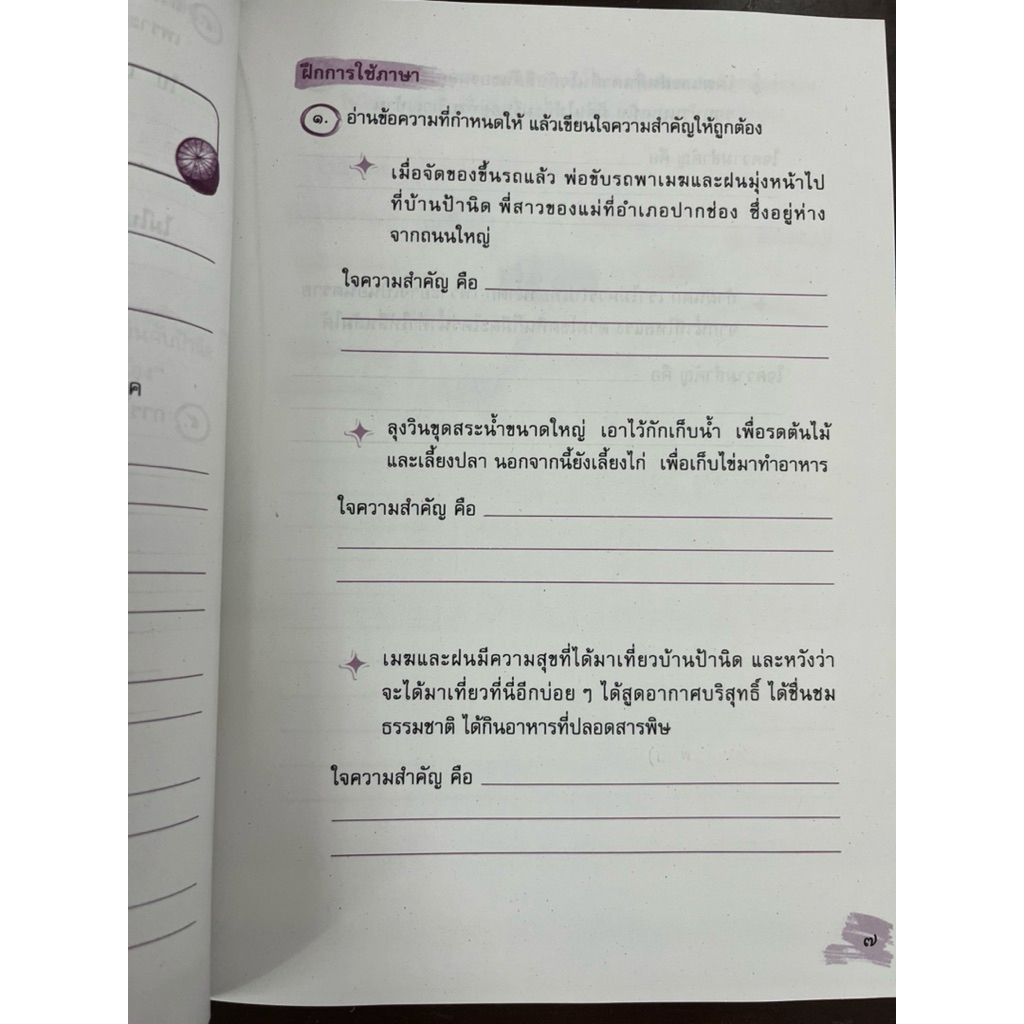 ฝึกการใช้ภาษา
๑. อ่านข้อความที่กำหนดให้ แล้วเขียนใจความสำคัญให้ถูกต้อง
เมื่อจัดของขึ้นรถแล้ว พ่อขับรถพาเมฆและฝนมุ่งหน้าไป
ที่บ้านป้านิด พี่สาวของแม่ที่อำเภอปากช่อง ซึ่งอยู่ห่าง
จากถนนใหญ่
ใจความสำคัญ คือ
ลุงวินขุดสระน้ำขนาดใหญ่ เอาไว้กักเก็บน้ำ เพื่อรดต้นไม้
และเลี้ยงปลา นอกจากนี้ยังเลี้ยงไก่ เพื่อเก็บไข่มาทำอาหาร
ใจความสำคัญ คือ
เมฆและฝนมีความสุขที่ได้มาเที่ยวบ้านป้านิด และหวังว่า
จะได้มาเที่ยวที่นี่อีกบ่อย ๆ ได้สูดอากาศบริสุทธิ์ ได้ชื่นชม
ธรรมชาติ ได้กินอาหารที่ปลอดสารพิษ
ใจความสำคัญ คือ
๗